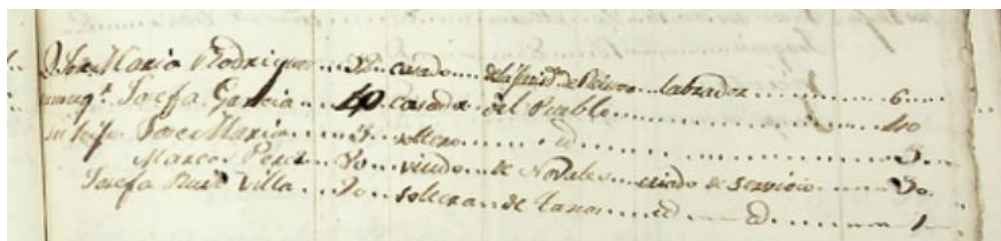 D. Jose Maria Rodriguez 32 casado labrador 6
mugr. Josefa Garcia 40 casada del Pueblo 40
su hijo Jose Maria 3 soltero id 3
Marcos Perez 30 viudo de Novales criado de servicio 30
Josefa Ruiz Villa 20 soltera de id id 1